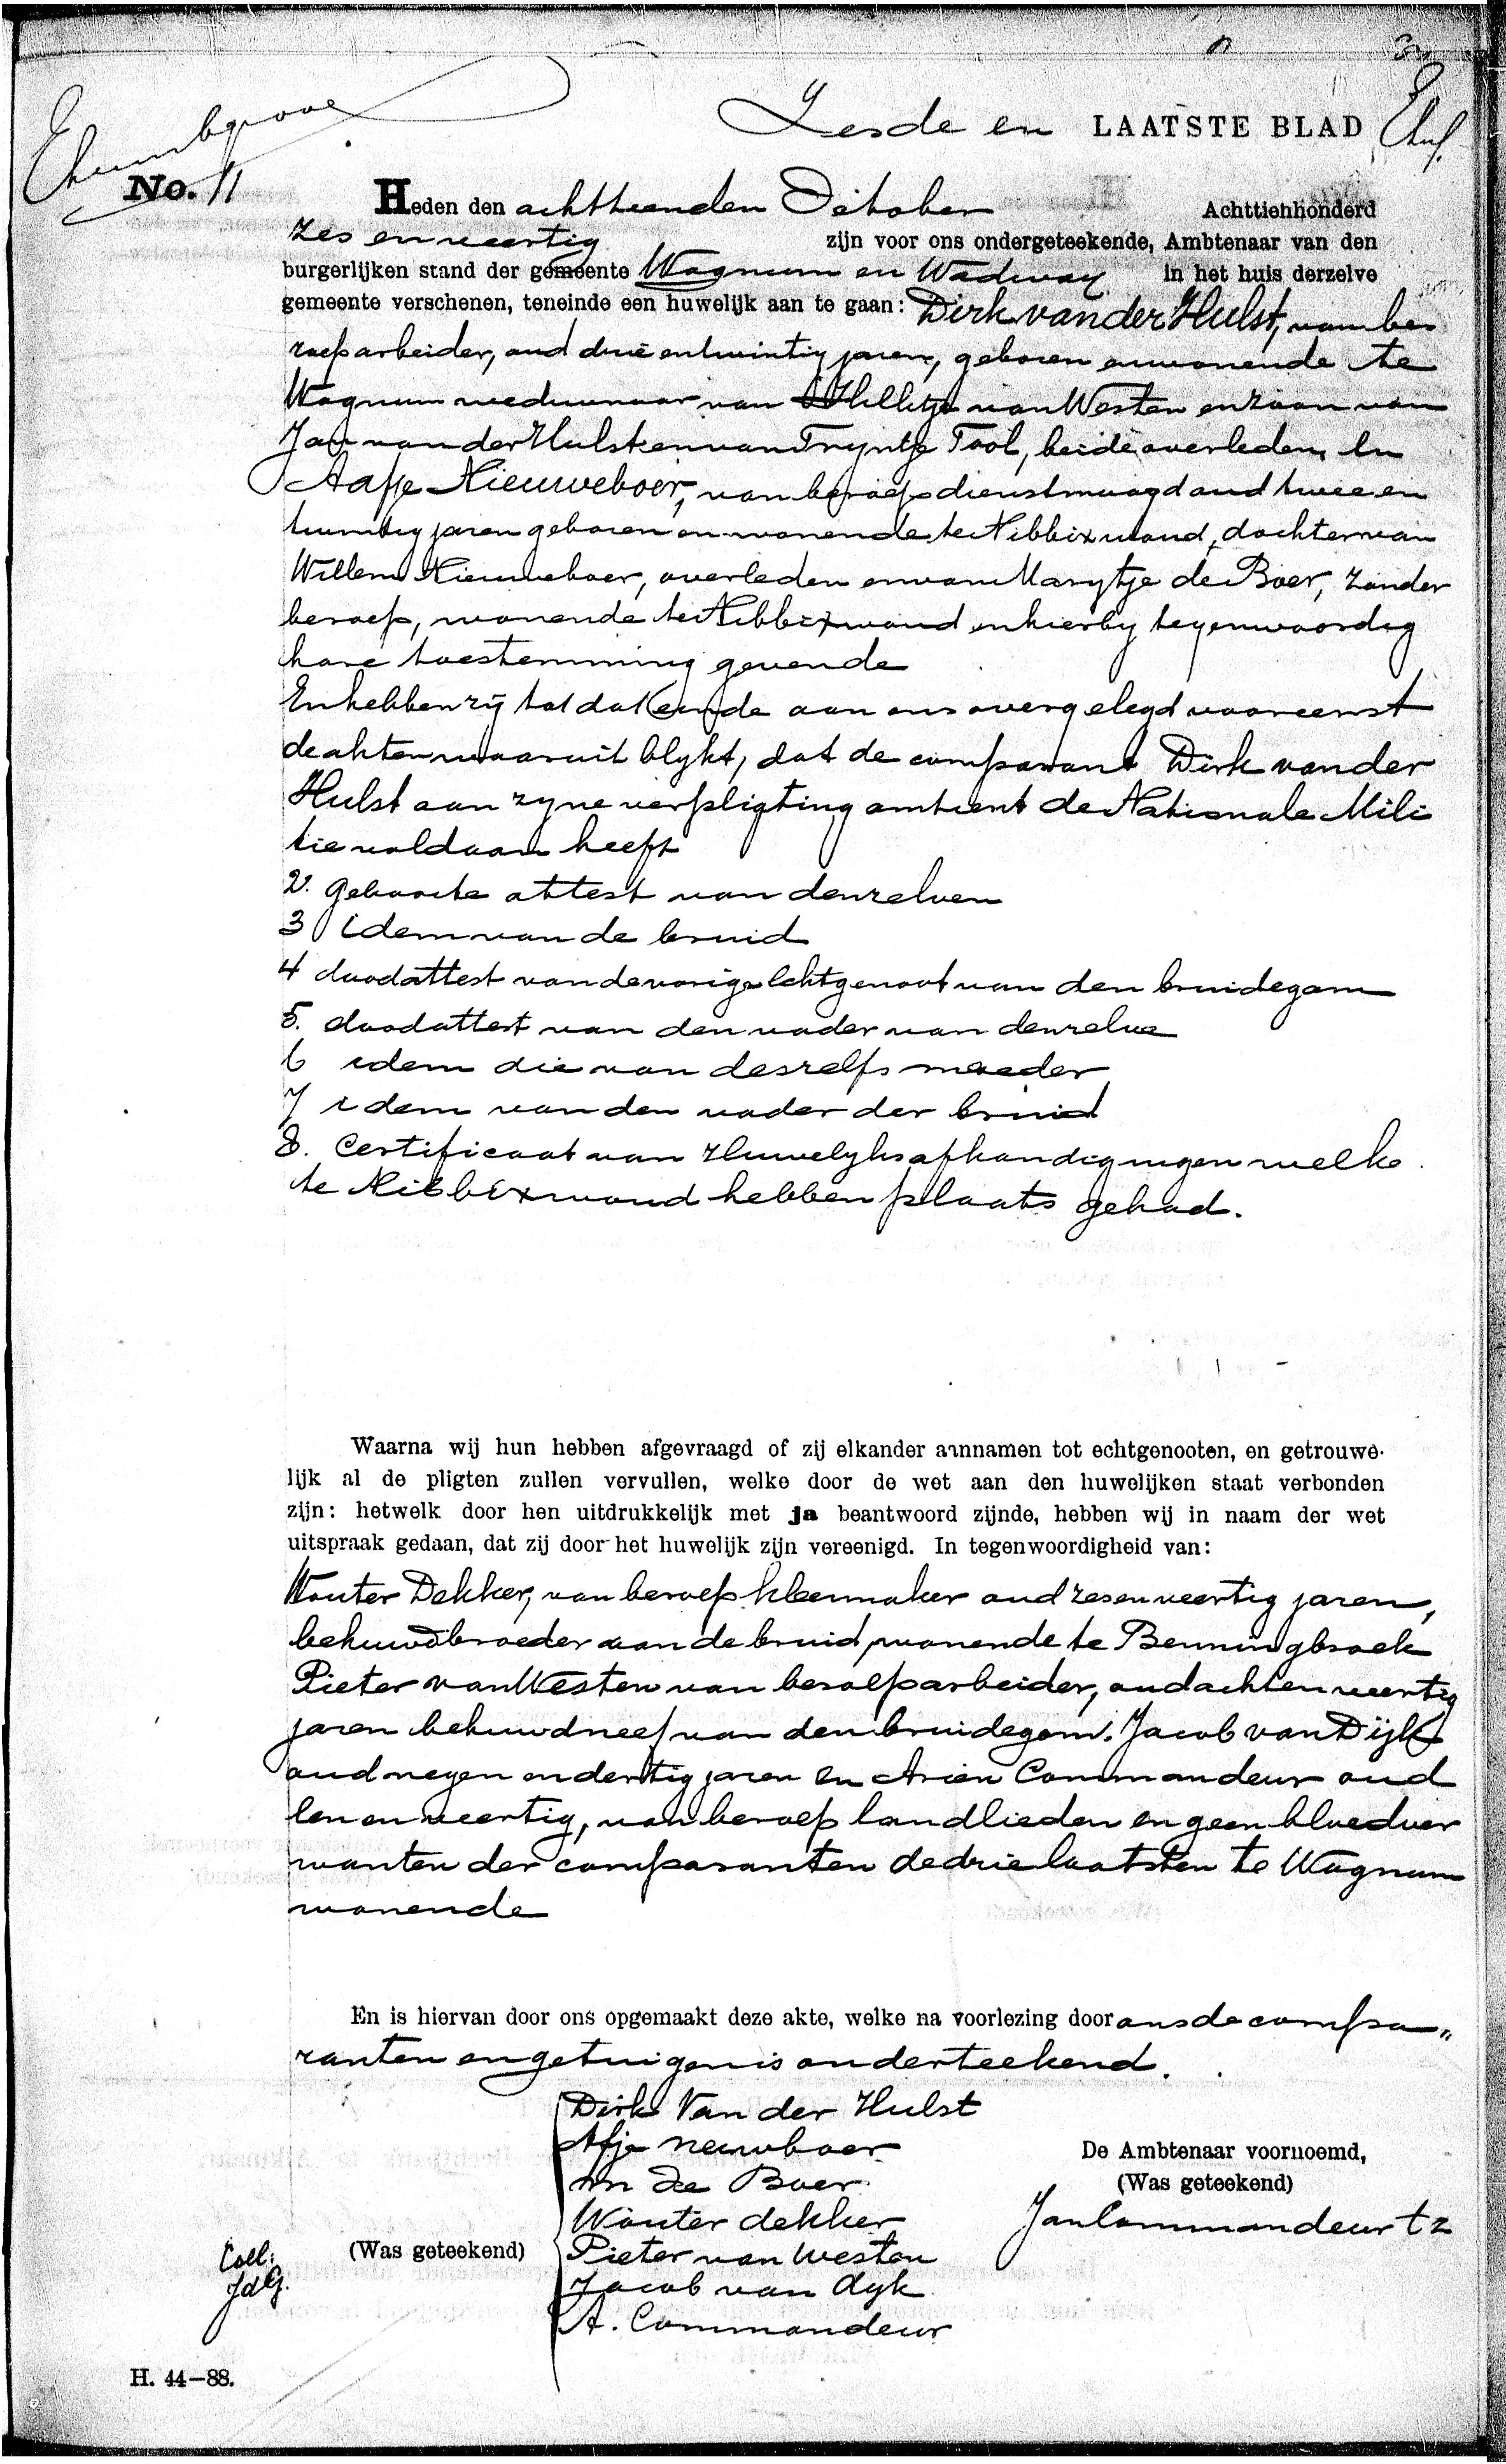 Zesde en LAATSTE BLAD
No. 11
Heden den achttienden October Achttienhonderd
zes en veertig zijn voor ons ondergeteekende, Ambtenaar van den
burgerlijken stand der gemeente Wognum en Wadway in het huis derzelve
gemeente verschenen, teneinde een huwelijk aan te gaan: Dirk van der Hulst, van be
roep arbeider, oud drie en twintig jaren, geboren en wonende te
Wognum weduwnaar van Hilletje van Westen en zoon van
Jan van der Hulst en van Tryntje Tool, beide overleden, En
Aafje Nieuweboer, van beroep dienstmaagd oud twee en
twintig jaren geboren en wonende te Nibbixwoud, dochter van
Willem Nieuweboer, overleden en van Marytje de Boer, zonder
beroep, wonende te Nibbixwoud en hierby tegenwoordig
hare toestemming gevende
En hebben zij tot dat einde aan ons overgelegd vooreerst
de akten waaruit blykt, dat de comparant Dirk van der
Hulst aan zyne verpligting omtrent de Nationale Mili
tie voldaan heeft
2. geboorte attest van denzelven
3 idem van de bruid
4 doodattest van de vorige Echtgenoot van den bruidegom
5. doodattest van den vader van denzelve
6 idem die van deszelfs moeder
7 idem van den vader der bruid
8. Certificaat van Huwelyksafkondigingen welke
te Nibbixwoud hebben plaats gehad.
Waarna wij hun hebben afgevraagd of zij elkander aannamen tot echtgenooten, en getrouwe-
lijk al de pligten zullen vervullen, welke door de wet aan den huwelijken staat verbonden
zijn: hetwelk door hen uitdrukkelijk met ja beantwoord zijnde, hebben wij in naam der wet
uitspraak gedaan, dat zij door het huwelijk zijn vereenigd. In tegenwoordigheid van:
Wouter Dekker, van beroep kleermaker oud zes en veertig jaren,
behuwdbroeder van de bruid, wonende te Benningbroek
Pieter van Westen van beroep arbeider, oud acht en veertig
jaren behuwdneef van den bruidegom. Jacob van Dijk
oud negen en dertig jaren En Arien Commandeur oud
een en veertig, van beroep landlieden en geen bloedver
wanten der comparanten de drie laatsten te Wognum
wonende
En is hiervan door ons opgemaakt deze akte, welke na voorlezing door ons de compa„
ranten en getuigen is onderteekend.
Dirk Van der Hulst
Afje neuwboer
M de Boer
Wouter dekker
Pieter van Westen
Jacob van dyk
A. Commandeur
(Was geteekend)
De Ambtenaar voornoemd,
(Was geteekend)
Jan Commandeur tz
Coll:
JdG.
H. 44–88.